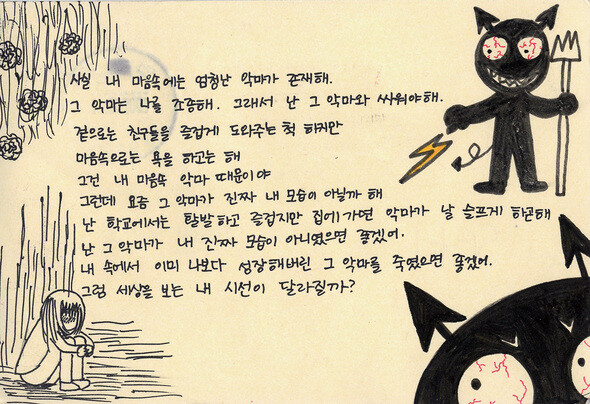 사실 내 마음속에는 엄청난 악마가 존재해.
그 악마는 나를 조종해. 그래서 난 그 악마와 싸워야해.
겉으로는 친구들을 즐겁게 도와주는 척 하지만
마음속으로는 욕을 하고는 해
그건 내 마음속 악마 때문이야
그런데 요즘 그 악마가 진짜 내 모습이 아닐까 해
난 학교에서는 활발하고 즐겁지만 집에 가면 악마가 날 슬프게 하곤해
난 그 악마가 내 진짜 모습이 아니였으면 좋겠어.
내 속에서 이미 나보다 성장해버린 그 악마를 죽였으면 좋겠어.
그럼 세상을 보는 내 시선이 달라질까?